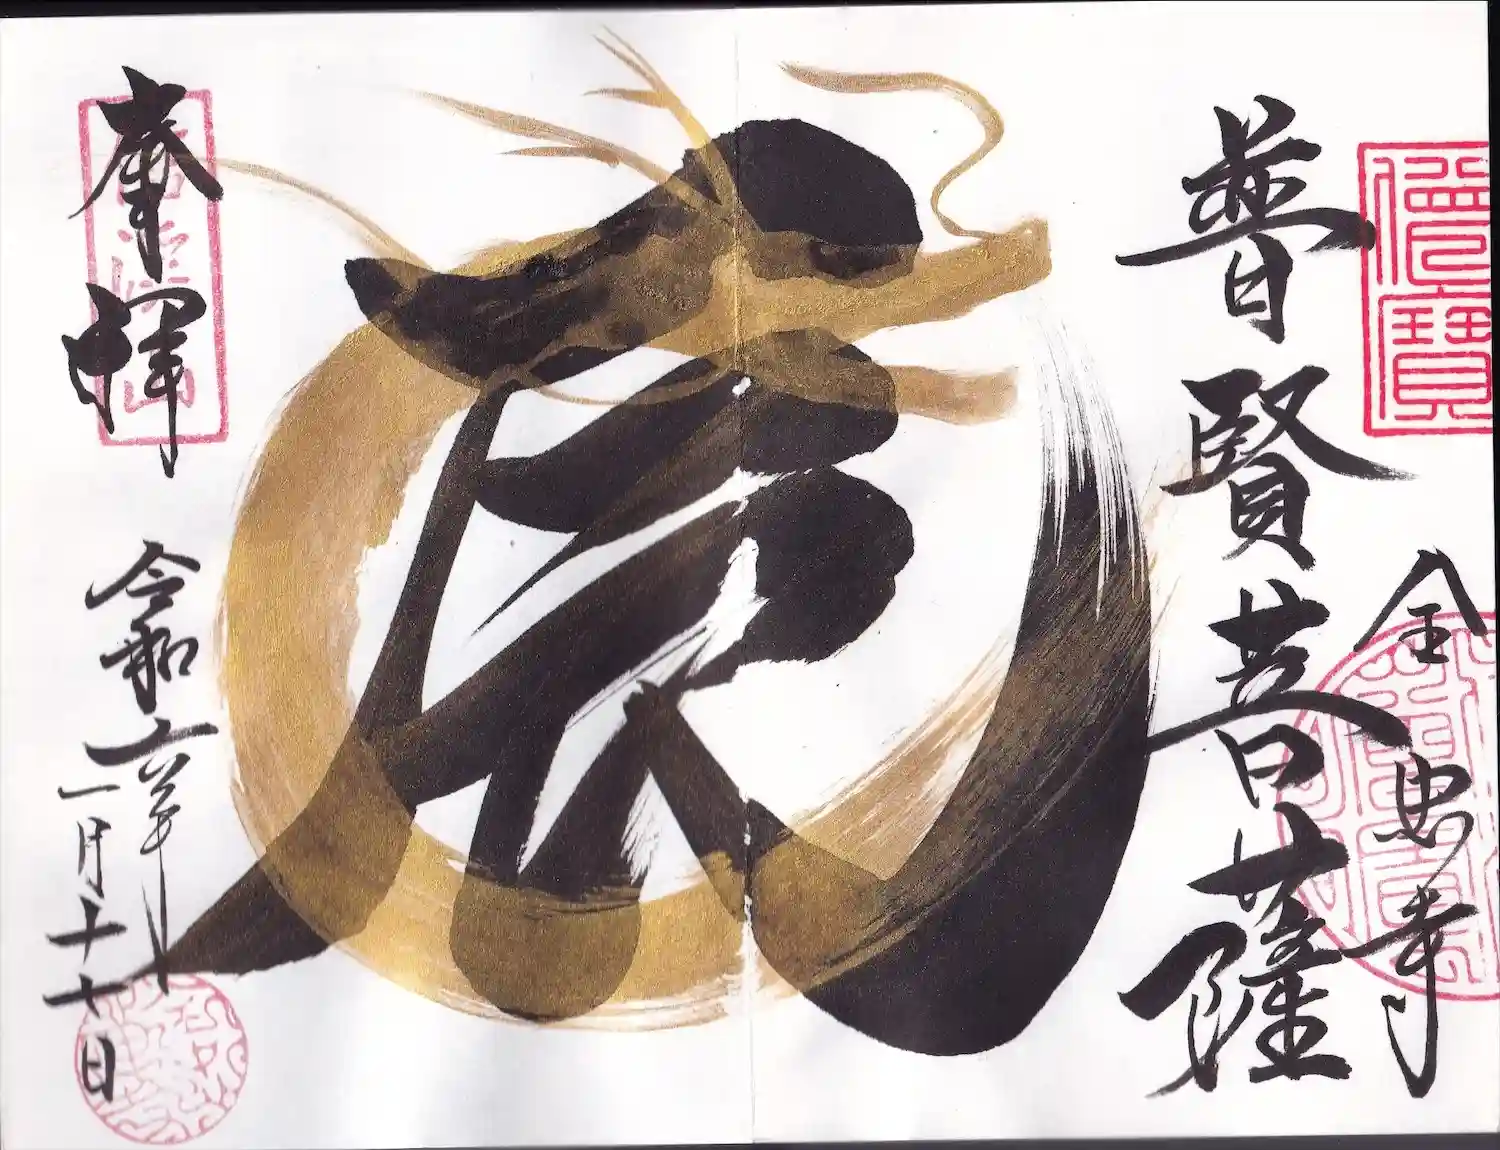 僧寶
全忠寺
普賢菩薩
辰
奉拝
令和六年
一月十七日